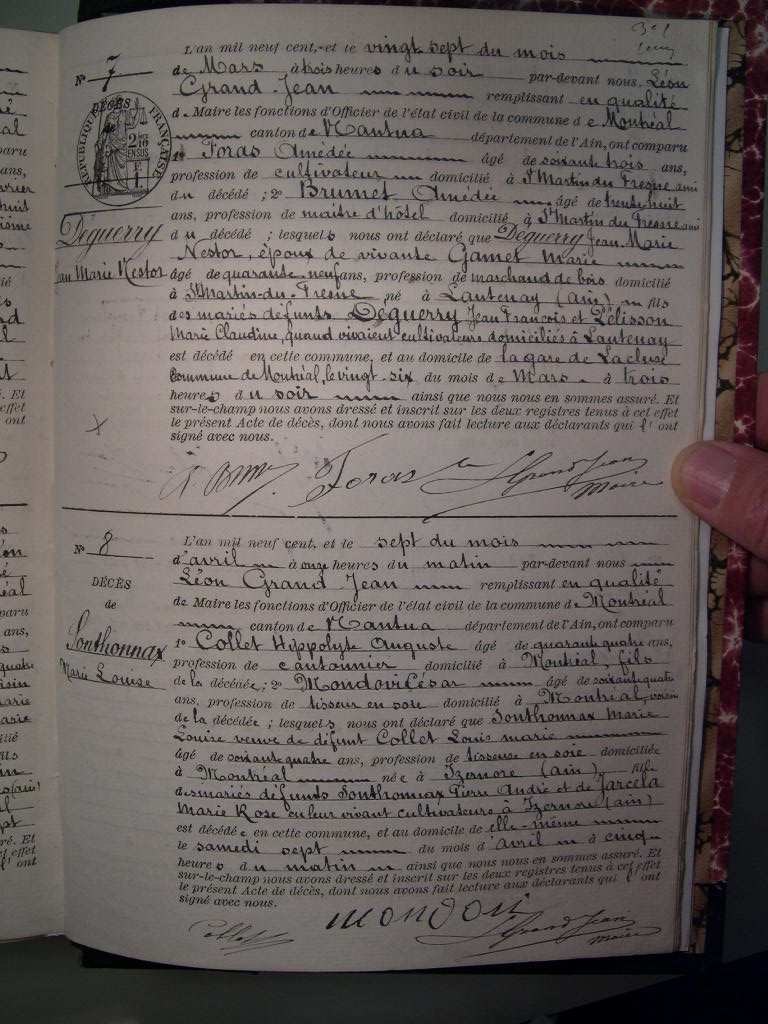 L'an mil neuf cent, et le vingt sept du mois
N° 7
de Mars à trois heures du soir par-devant nous Léon
Grand Jean remplissant en qualité
DÉCÈS
RÉPUBLIQUE FRANÇAISE
de Maire les fonctions d'Officier de l'état civil de la commune de Montréal
canton de Nantua département de l'Ain, ont comparu
1° Foras Amédée âgé de soixante trois ans,
profession de cultivateur domicilié à St Martin du Fresne, ami
du décédé ; 2° Brumet Amédée âgé de trente huit
ans, profession de maître d'hôtel domicilié à St Martin du Fresne, ami
Déguerry
du décédé ; lesquels nous ont déclaré que Déguerry Jean Marie
Nestor, époux de vivante Gamet Marie
Jean Marie Nestor
âgé de quarante neuf ans, profession de marchand de bois domicilié
à St Martin-du-Fresne né à Lantenay (ain) fils
des mariés défunts Déguerry Jean François et Pélisson
Marie Claudine, quand vivaient cultivateurs domiciliés à Lantenay
est décédé en cette commune, et au domicile de la gare de Lacluse
Commune de Montréal, le vingt-six du mois de Mars à trois
heures du soir ainsi que nous nous en sommes assuré. Et
sur-le-champ nous avons dressé et inscrit sur les deux registres tenus à cet effet
le présent Acte de décès, dont nous avons fait lecture aux déclarants qui l'ont
signé avec nous.
Foras L Grand Jean
Maire
L'an mil neuf cent, et le sept du mois
N° 8
d'avril à onze heures du matin par-devant nous
Léon Grand Jean remplissant en qualité
DÉCÈS
de
de Maire les fonctions d'Officier de l'état civil de la commune de Montréal
canton de Nantua département de l'Ain, ont comparu
Sonthonnax
1° Collet Hippolyte Auguste âgé de quarante quatre ans,
profession de cantonnier domicilié à Montréal, fils
Marie Louise
de la décédée ; 2° Mondovi César âgé de soixante quatre
ans, profession de tisseur en soie domicilié à Montréal, voisin
de la décédée ; lesquels nous ont déclaré que Sonthonnax Marie
Louise veuve de défunt Collet Louis marie
âgé de soixante quatre ans, profession de tisseuse en soie domiciliée
à Montréal née à Izernore (ain) fille
des mariés défunts Sonthonnax Pierre André et de Jarcela
Marie Rose en leur vivant cultivateurs à Izernore (ain)
est décédée en cette commune, et au domicile de elle-même
le samedi sept du mois d'avril à cinq
heures du matin ainsi que nous nous en sommes assuré. Et
sur-le-champ nous avons dressé et inscrit sur les deux registres tenus à cet effet
le présent Acte de décès, dont nous avons fait lecture aux déclarants qui l'ont
signé avec nous.
Collet MONDOVI L Grand Jean
Maire